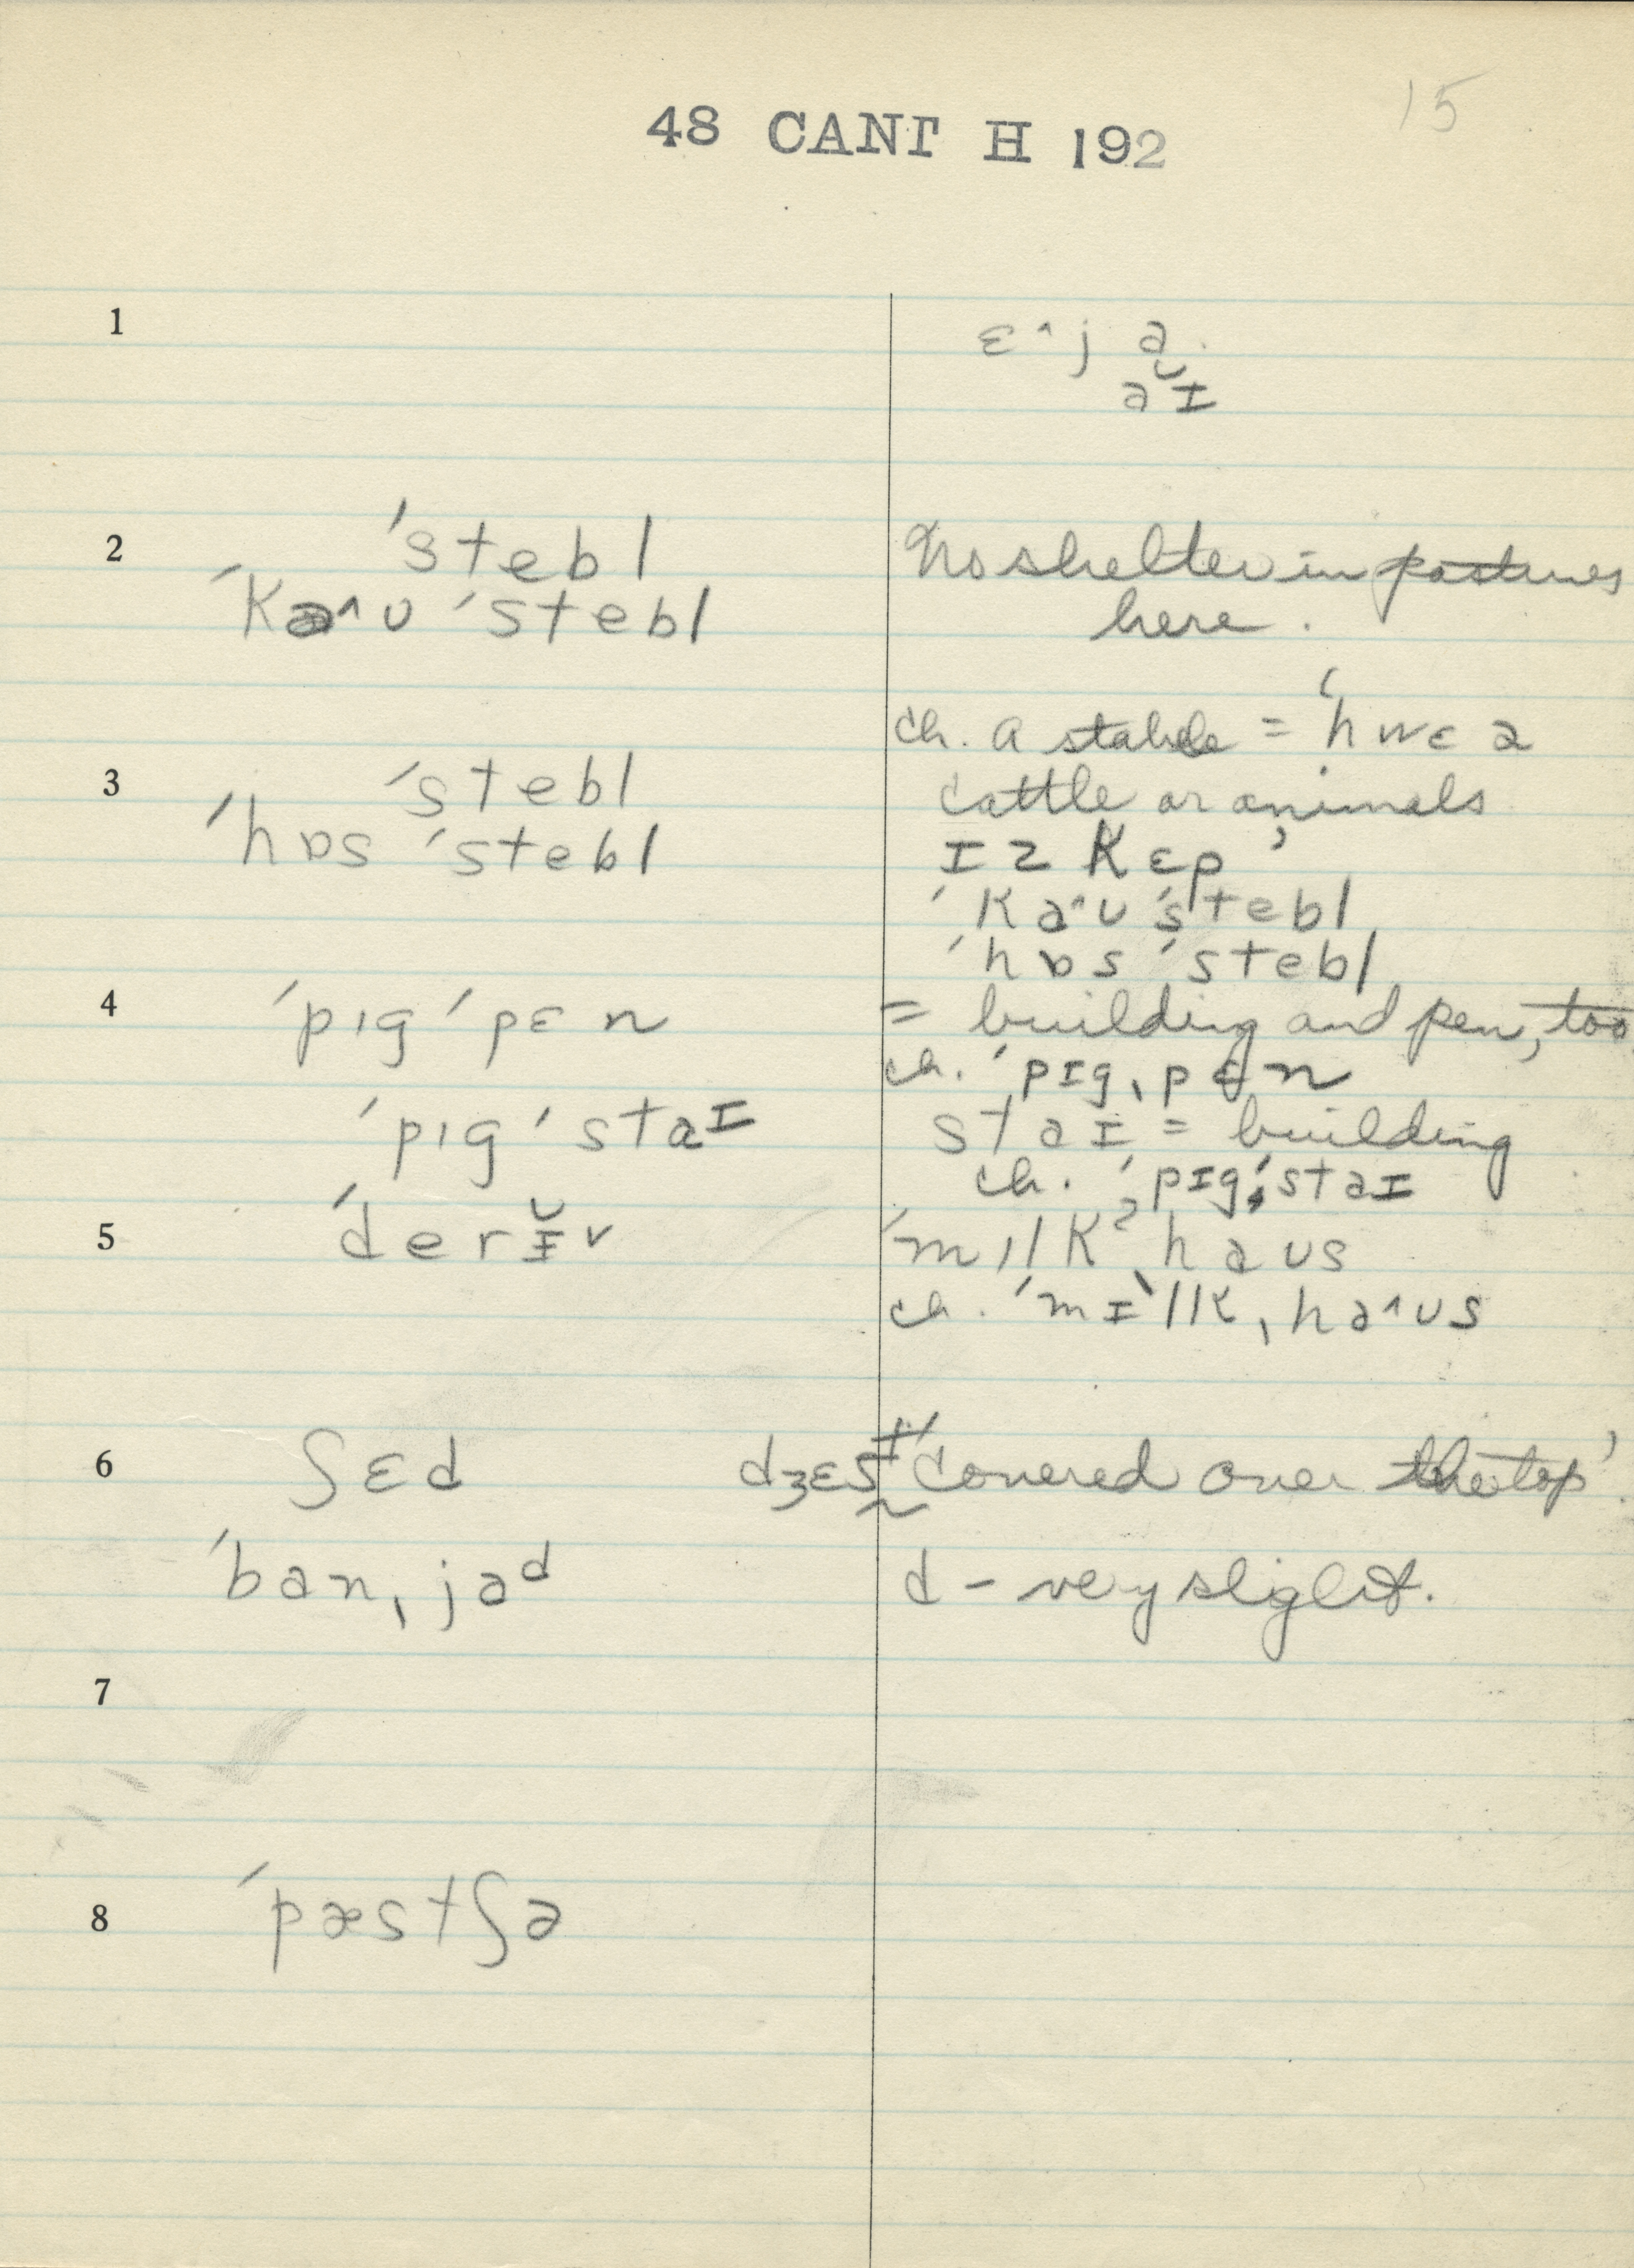 15
48 CANT H 192
1
ɛ^j ə
əˇɪ
2
ˈstebl
ˈkaʌʊ ˈstebl
No shelter in pastures
here.
3
ˈstebl
ˈhɒs ˈstebl
ch. a stable = ‘hwɛə
cattle or animals
ɪz kɛp’
ˈka^ʊ ˈstebl
ˈhɒs ˈstebl
4
ˈpɪg ˈpɛn
= building and pen, too
ch. ˈpɪgˌpɛn
ˈpɪg ˈstaɪ
staɪ = building
ch. ˈpɪgˈstaɪ
5
ˈderɪ̆v
ˈmɪlkˀˌhaʊs
ch. ˈmɪlkˌha^ʊs
6
ʃɛd
dʒɛst ‘covered over the top’.
ˈbanˌjaᵈ
d - very slight.
7
8
ˈpæstʃə